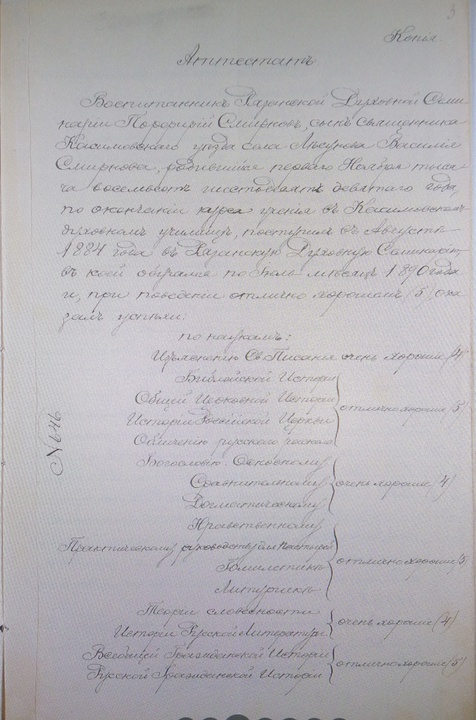 3
Копія.
Аттестатъ
Воспитанникъ Рязанской Духовной Семи
наріи Порфирій Смирновъ, сынъ священника
Касимовскаго уѣзда села Василія
Смирнова, родившійся перваго Ноября тыся
ча восемьсотъ шестьдесятъ девятаго года,
по окончаніи курса ученія въ Касимовскомъ
духовномъ училищѣ, поступилъ въ Августѣ
1884 года въ Рязанскую Духовную Семинарію,
въ коей обучался по Іюль мѣсяцъ 1890 года
и, при поведеніи отлично хорошемъ (5) ока
залъ успѣхи:
по наукамъ:
Изъясненію Св. Писанія очень хорошіе (4)
Библейской Исторіи
Общей Церковной Исторіи
Исторіи Россійской Церкви
отлично хорошіе (5)
Обличенію русскаго раскола
Богословію Основному
Сравнительному
очень хорошіе (4)
Догматическому
Нравственному
Практическому руководству для пастырей
Гомилетикѣ
отлично хорошіе (5)
Литургикѣ
Теоріи словесности
Исторіи Русской Литературы
очень хорошіе (4)
Всеобщей Гражданской Исторіи
Русской Гражданской Исторіи
отлично хорошіе (5)
№ 646